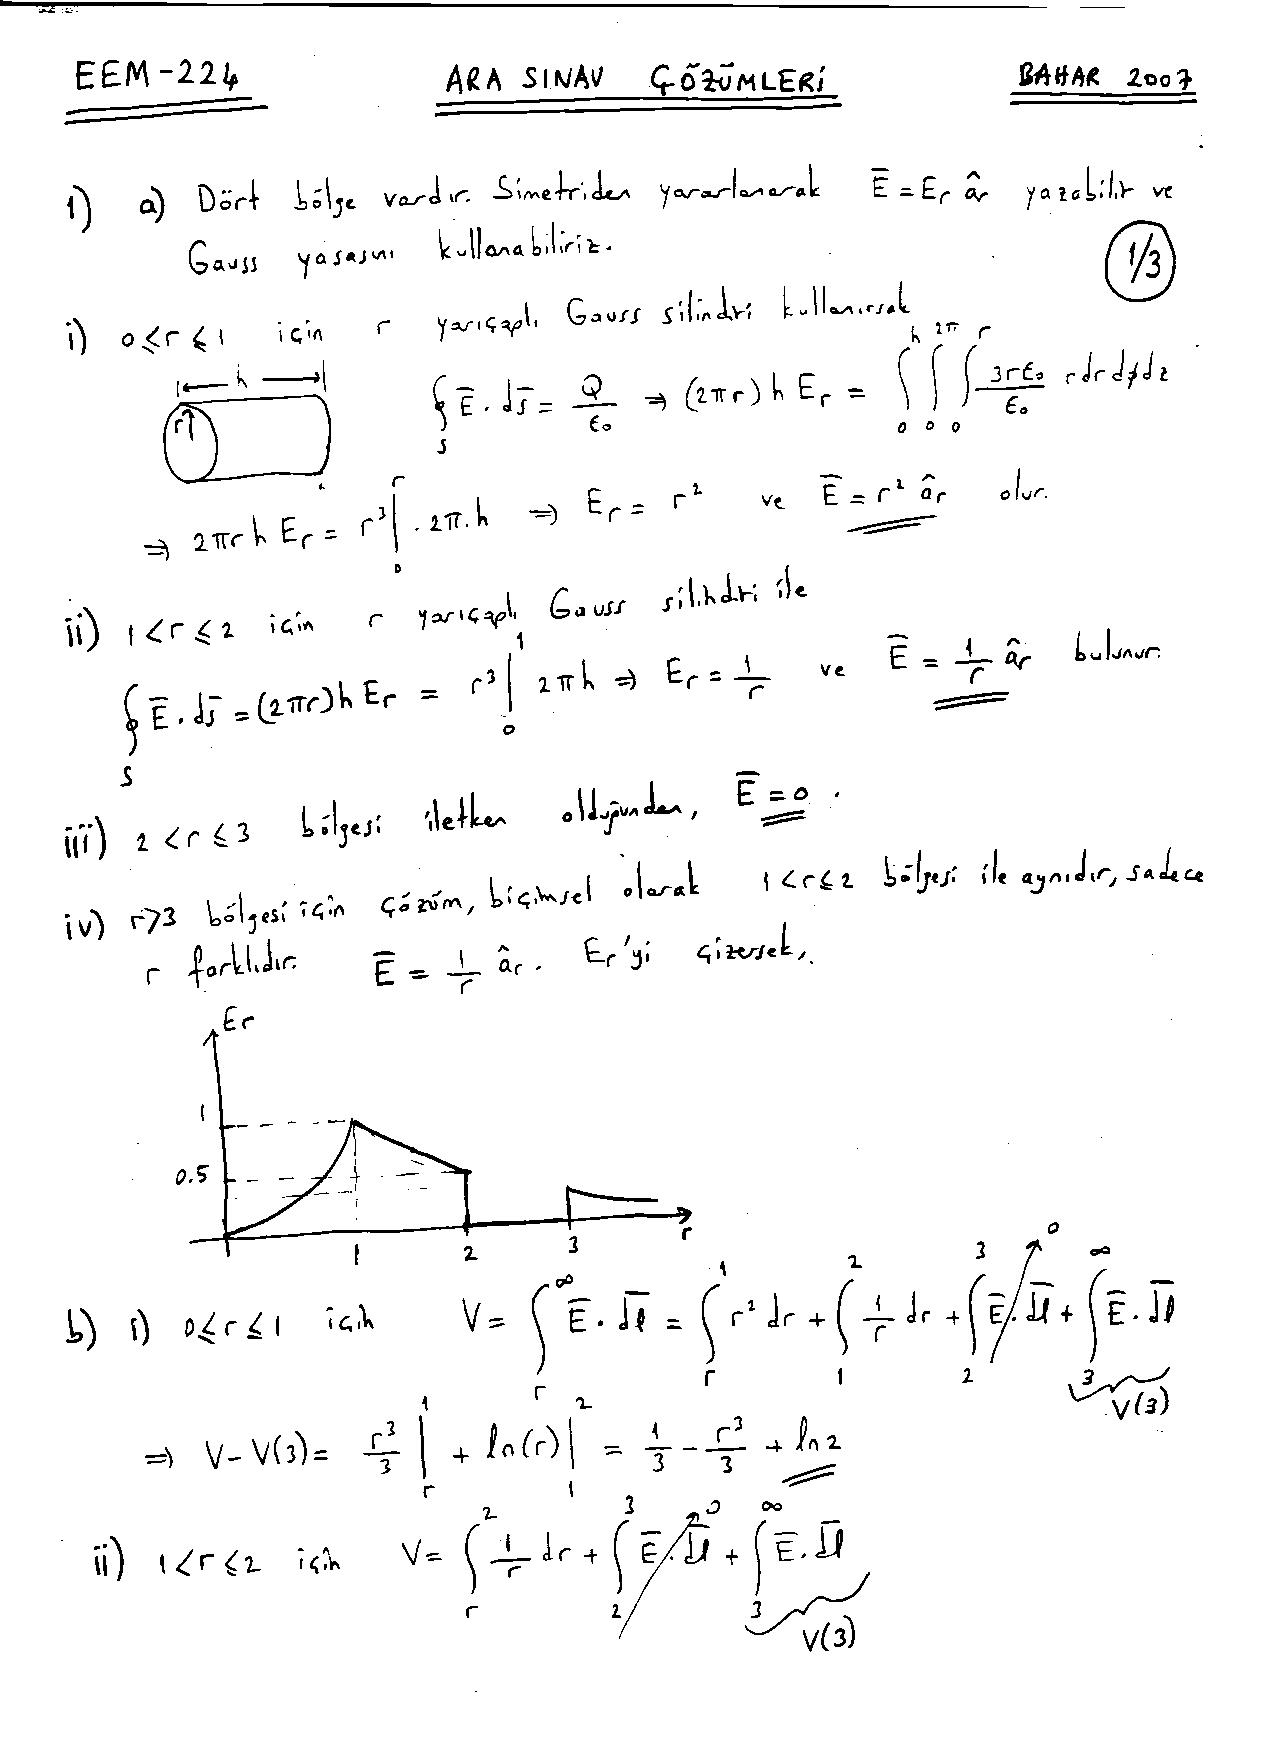 EEM-224 ARA SINAV ÇÖZÜMLERİ BAHAR 2007
1) a) Dört bölge vardır. Simetriden yararlanarak E̅ = Er âr yazabilir ve
Gauss yasasını kullanabiliriz.
1/3
i) 0≤r≤1 için r yarıçaplı Gauss silindri kullanırsak
h
r
∮_S E̅.ds̅ = Q/ε₀ ⇒ (2πr)h Er = ∫₀^h ∫₀^2π ∫₀^r 3rε₀/ε₀ rdrdϕdz
⇒ 2πrh Er = r³|₀^r . 2π.h ⇒ Er = r² ve E̅ = r² âr olur.
ii) 1<r≤2 için r yarıçaplı Gauss silindri ile
∮_S E̅.ds̅ = (2πr)h Er = r³|₀^1 2πh ⇒ Er = 1/r ve E̅ = 1/r âr bulunur.
iii) 2<r≤3 bölgesi iletken olduğundan, E̅ = 0.
iv) r>3 bölgesi için çözüm, biçimsel olarak 1<r≤2 bölgesi ile aynıdır, sadece
r farklıdır. E̅ = 1/r âr. Er'yi çizersek,
Er
1
0.5
1 2 3 r
b) i) 0≤r≤1 için V = ∫_r^∞ E̅.dl̅ = ∫_r^1 r² dr + ∫_1^2 1/r dr + ∫_2^3 E̅.dl̅ 0 + ∫_3^∞ E̅.dl̅
V(3)
⇒ V-V(3) = r³/3 |_r^1 + ln(r)|_1^2 = 1/3 - r³/3 + ln2
ii) 1<r≤2 için V = ∫_r^2 1/r dr + ∫_2^3 E̅.dl̅ 0 + ∫_3^∞ E̅.dl̅
V(3)